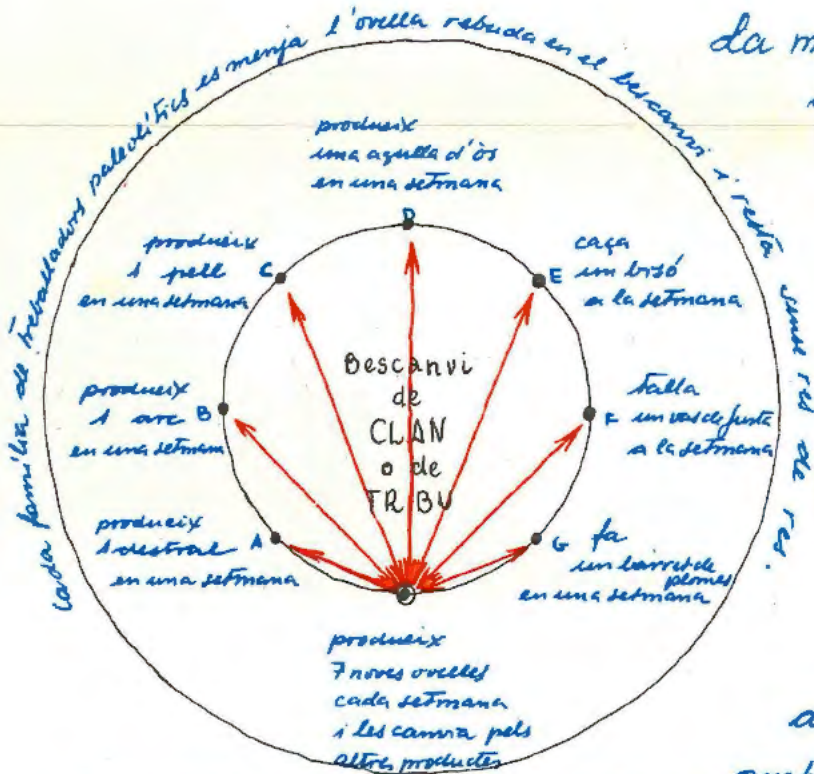 Cada família de treballadors paleolítics es menja l'ovella rebuda en el bescanvi i resta sense res de res.
da m
produeix
una agulla d'òs
en una setmana
D
produeix
1 pell
en una setmana
C
E
caça
un bisó
a la setmana
produeix
1 arc
en una setmana
B
F
talla
un vas de fusta
a la setmana
produeix
1 destral
en una setmana
A
G
fa
un barret de
plomes
en una setmana
Bescanvi
de
CLAN
o de
TRIBU
produeix
7 noves ovelles
cada setmana
i les canvia pels
altres productes
a